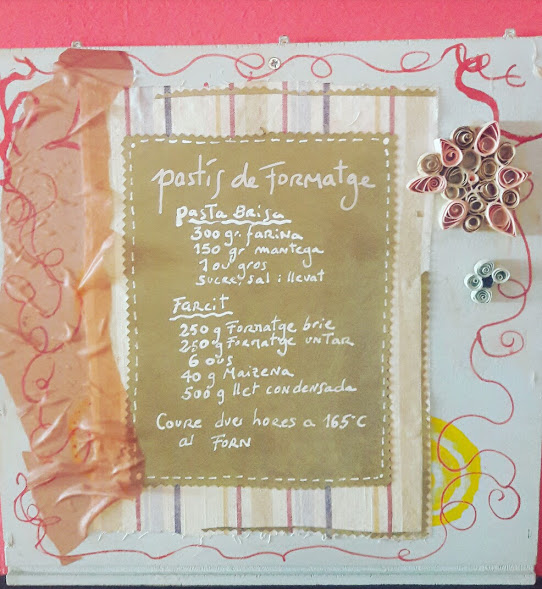 pastís de Formatge
Pasta Brisa
300 gr. farina
150 gr mantega
1 ou gros
sucre, sal i llevat
Farcit
250 g Formatge brie
250 g Formatge untar
6 ous
40 g Maizena
500 g llet condensada
Coure dues hores a 165°C
al Forn